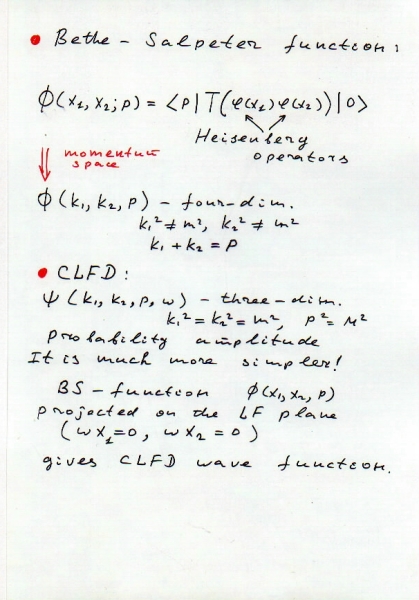 • Bethe - Salpeter function:
Φ(x₁, x₂; p) = ⟨p|T(φ(x₁)φ(x₂))|0⟩
Heisenberg
operators
momentum
space
Φ(k₁, k₂, p) - four-dim.
k₁² ≠ m², k₂² ≠ m²
k₁ + k₂ = p
• CLFD:
ψ(k₁, k₂, p, ω) - three-dim.
k₁² = k₂² = m², p² = M²
probability amplitude
It is much more simpler!
BS - function Φ(x₁, x₂, p)
projected on the LF plane
(ωx₁=0, ωx₂=0)
gives CLFD wave function.